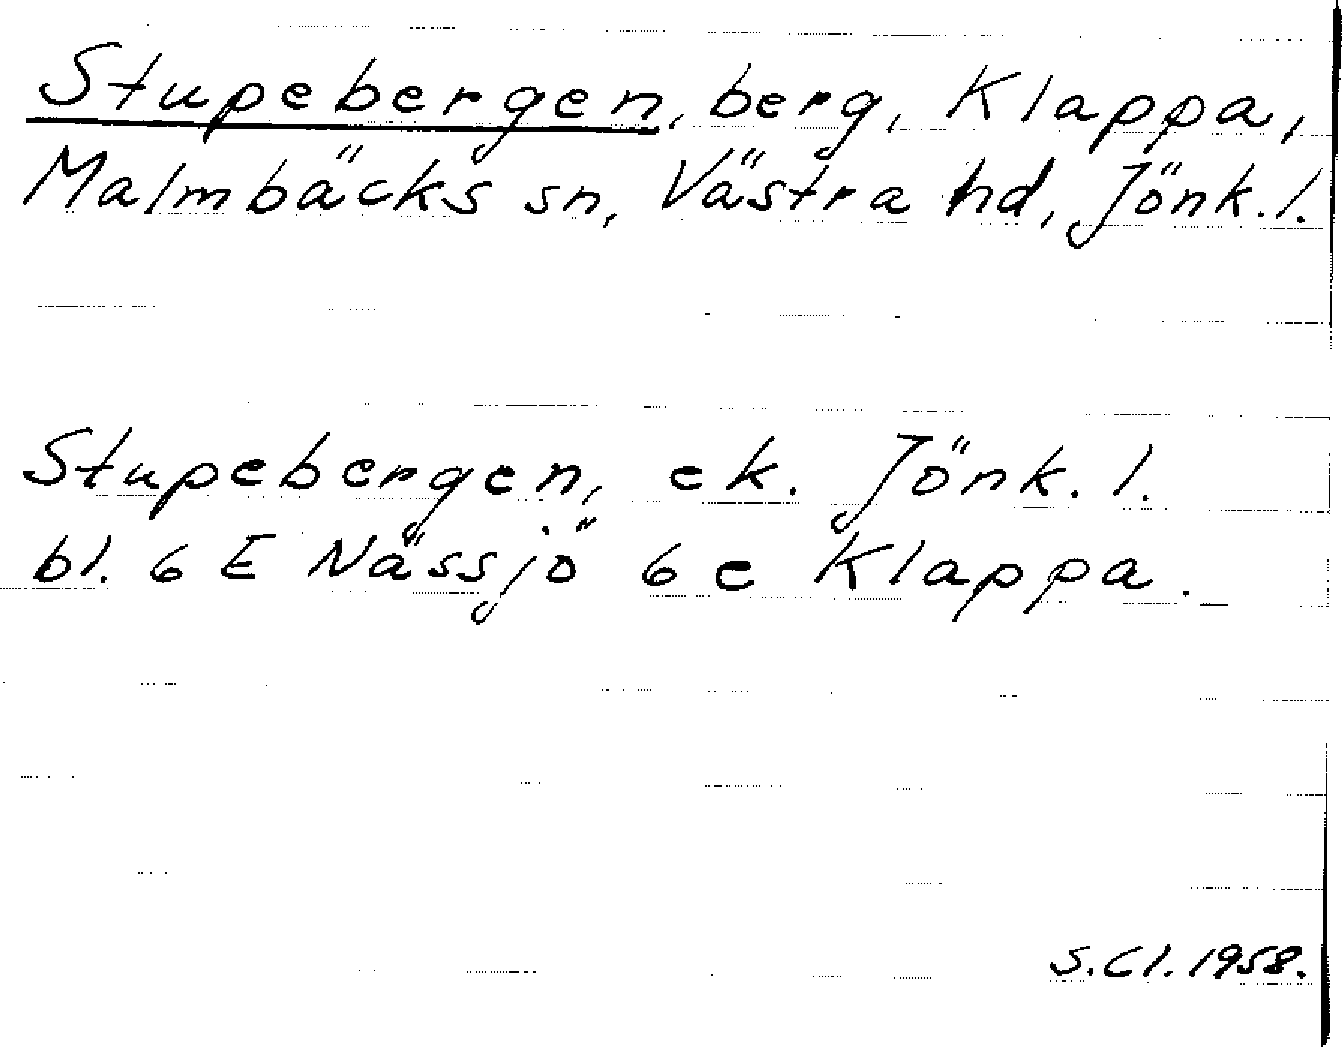 Stupebergen, berg, Klappa,
Malmbäcks sn, Västra hd, Jönk. l.
Stupebergen, ek. Jönk. l.
bl. 6 E Nässjö 6 e Klappa.
S. Cl. 1958.